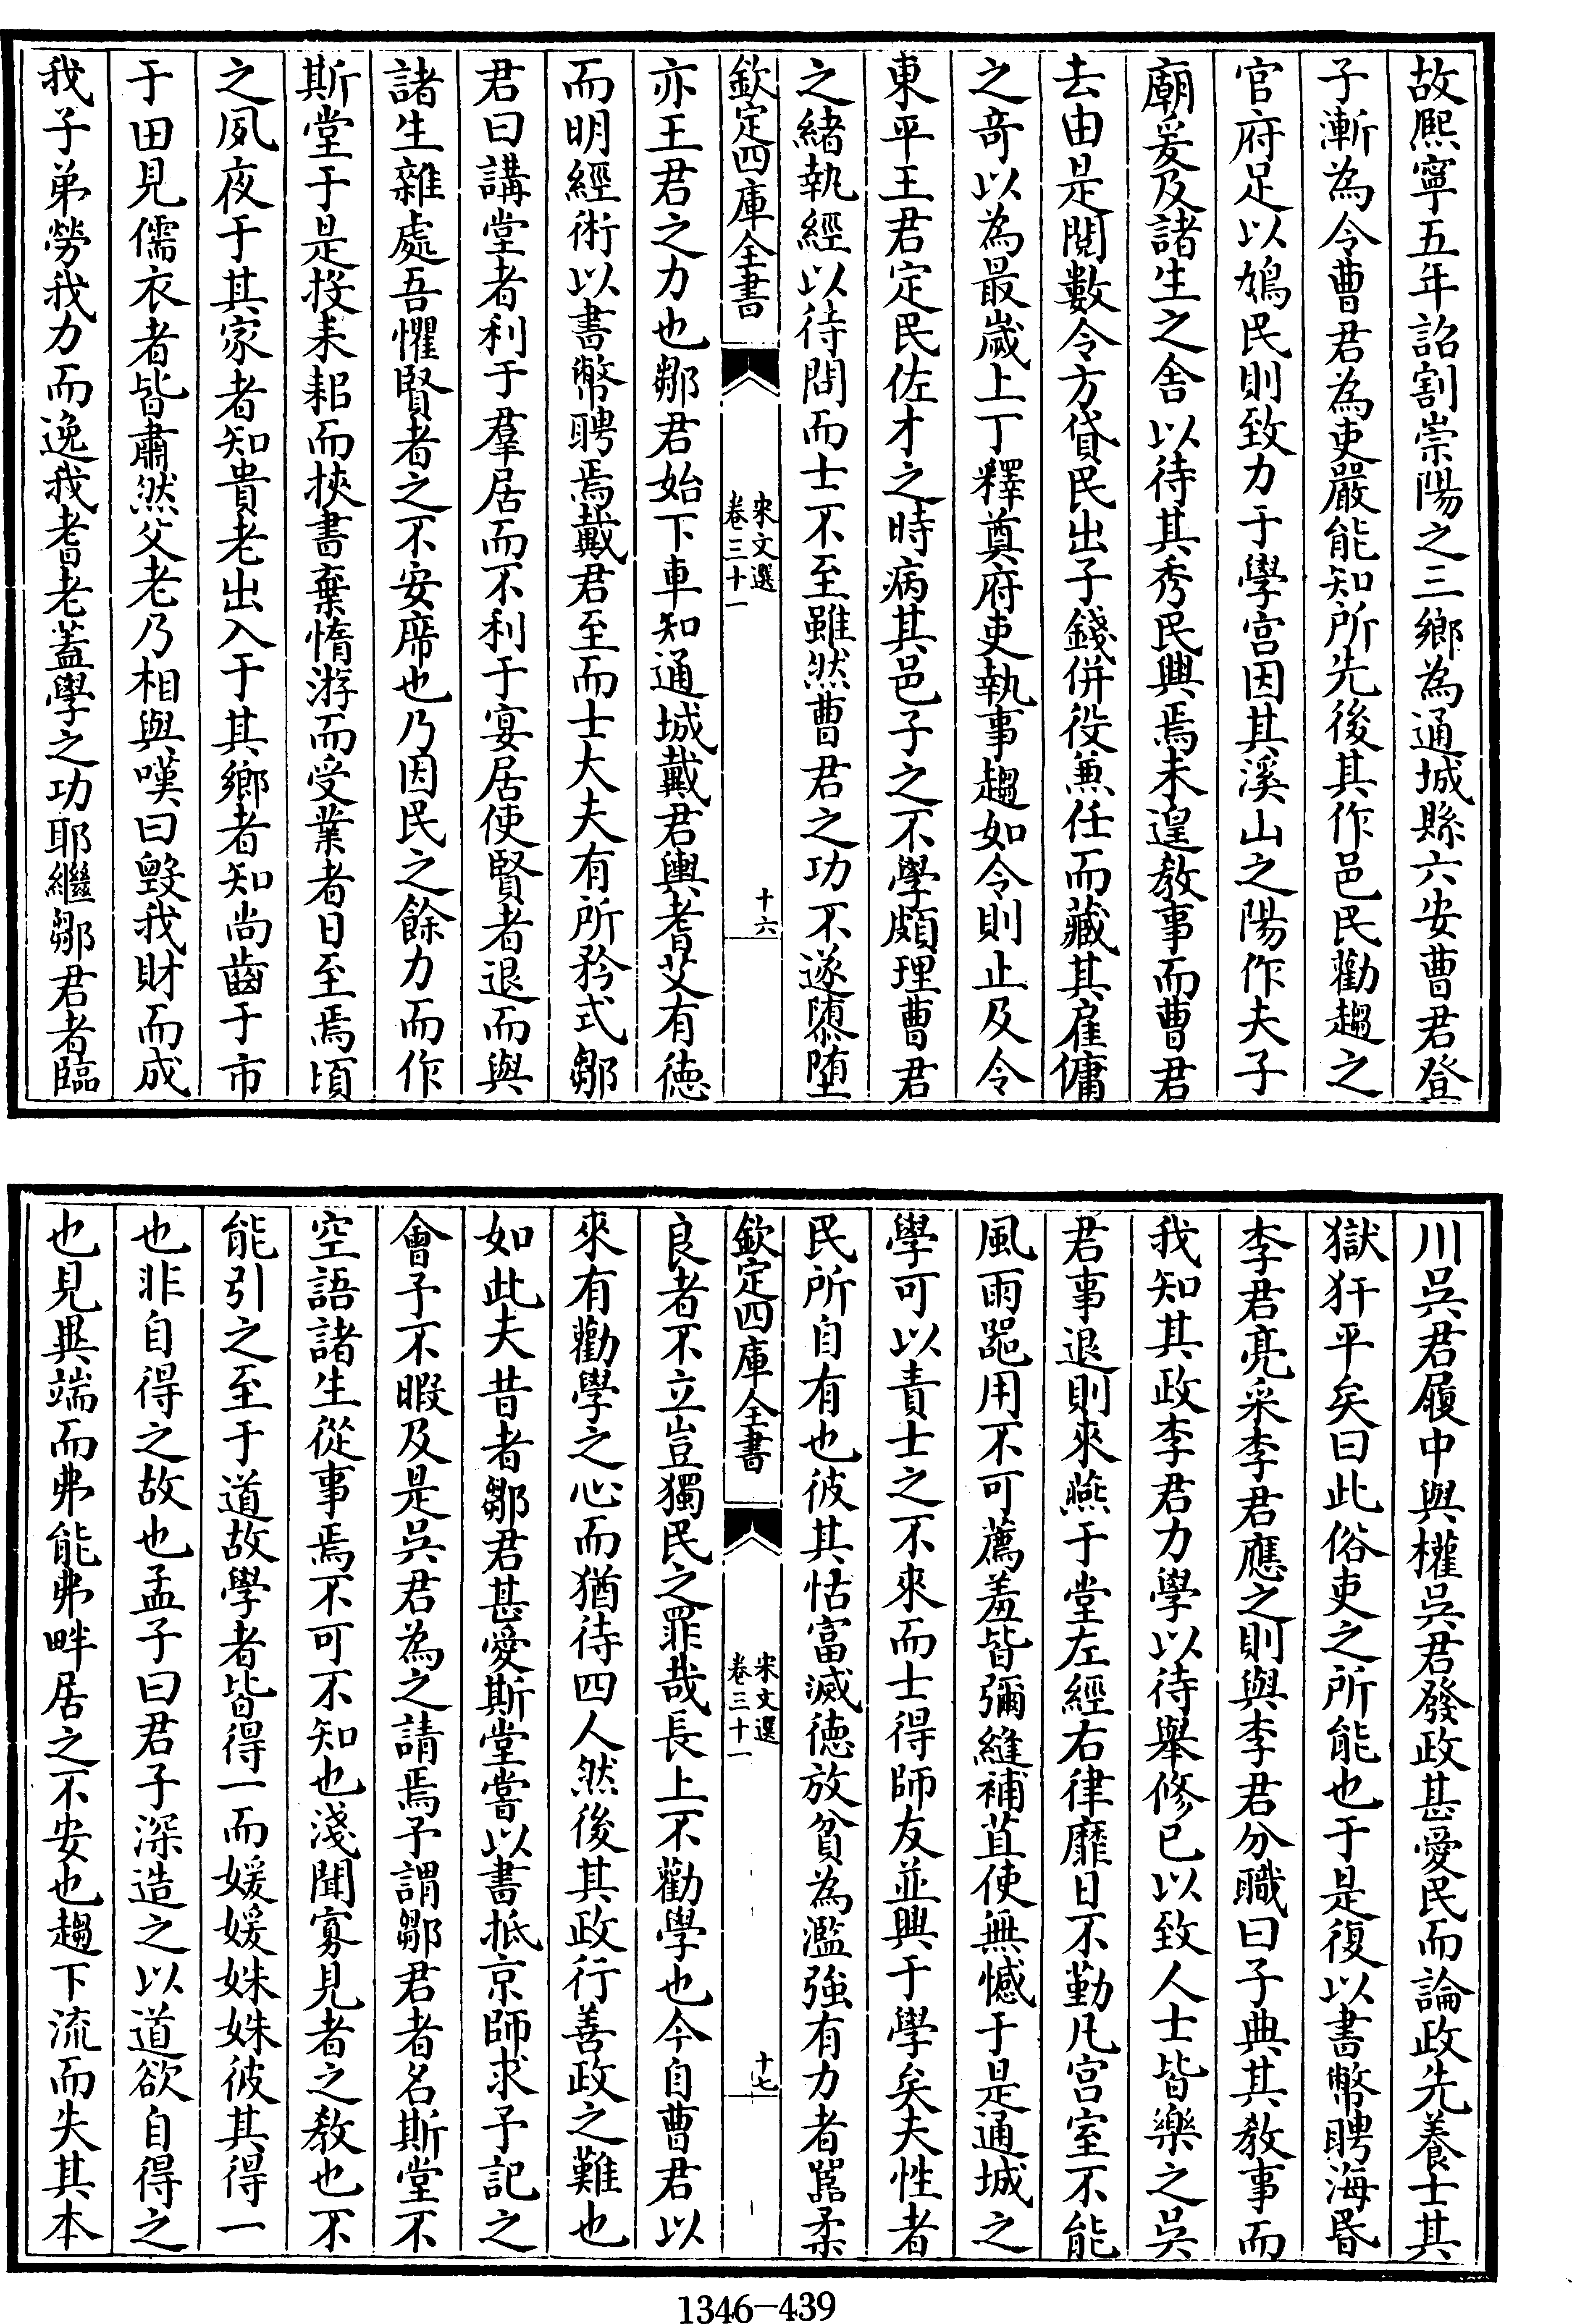 故熈寧五年詔割崇陽之三鄉為通城縣六安曹君登
子漸為令曹君為吏嚴能知所先後其作邑民勸趨之
官府足以鳩民則致力于學宫因其溪山之陽作夫子
廟爰及諸生之舎以待其秀民興焉未遑敎事而曹君
去由是閱數令方貸民出子錢併役兼任而藏其雇傭
之竒以為最嵗上丁釋奠府吏執事趨如令則止及令
東平王君定民佐才之時病其邑子之不學頗理曹君
之緒執經以待問而士不至雖然曹君之功不遂隳墮
欽定四庫全書
宋文選
卷三十一
十六
亦王君之力也鄒君始下車知通城戴君輿耆艾有徳
而明經術以書幣聘焉戴君至而士大夫有所矜式鄒
君曰講堂者利于羣居而不利于宴居使賢者退而與
諸生雜處吾懼賢者之不安席也乃因民之餘力而作
斯堂于是投耒耜而挾書棄惰游而受業者日至焉頃
之夙夜于其家者知貴老出入于其鄉者知尚齒于市
于田見儒衣者皆肅然父老乃相與嘆曰毀我財而成
我子弟勞我力而逸我耆老蓋學之功耶繼鄒君者臨
川吳君履中與權吳君發政甚愛民而論政先養士其
獄犴平矣曰此俗吏之所能也于是復以書幣聘海昏
李君亮采李君應之則與李君分職曰子典其敎事而
我知其政李君力學以待舉修已以致人士皆樂之吳
君事退則來燕于堂左經右律靡日不勤凡宫室不能
風雨噐用不可薦羞皆彌縫補苴使無憾于是通城之
學可以責士之不來而士得師友並興于學矣夫性者
民所自有也彼其怙富滅徳放貧為濫強有力者嚚柔
欽定四庫全書
宋文選
卷三十一
十七
良者不立豈獨民之罪哉長上不勸學也今自曹君以
來有勸學之心而猶待四人然後其政行善政之難也
如此夫昔者鄒君甚愛斯堂嘗以書抵京師求予記之
會予不暇及是吳君為之請焉予謂鄒君者名斯堂不
空語諸生從事焉不可不知也淺聞寡見者之敎也不
能引之至于道故學者皆得一而媛媛姝姝彼其得一
也非自得之故也孟子曰君子深造之以道欲自得之
也見異端而弗能弗畔居之不安也趨下流而失其本
1346-439